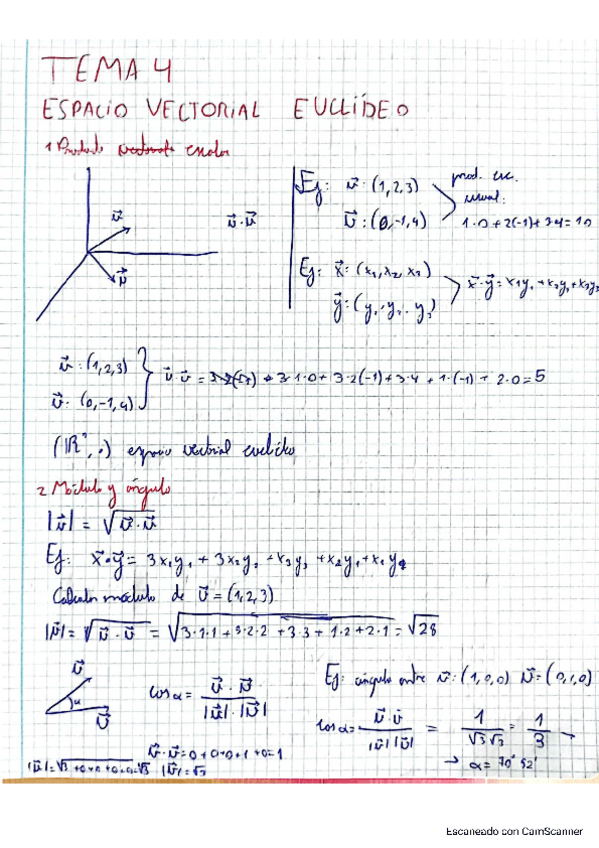 TEMA 4
ESPACIO VECTORIAL EUCLÍDEO
1 Producto escalar
u⃗
v⃗
u⃗·v⃗
Ej: u⃗: (1,2,3)
v⃗: (0,-1,4)
prod. esc.
usual:
1·0+2(-1)+3·4=10
Ej: x⃗: (x₁,x₂,x₃)
y⃗: (y₁,y₂,y₃)
x⃗·y⃗=x₁y₁+x₂y₂+x₃y₃
u⃗: (1,2,3)
v⃗: (0,-1,4)
u⃗·v⃗ = 3·1·0+3·2(-1)+3·4+1·(-1)+2·0=5
(ℝⁿ,·) espacio vectorial euclídeo
2 Módulo y ángulo
|u⃗| = √u⃗·u⃗
Ej: x⃗·y⃗ = 3x₁y₁+3x₂y₂+x₃y₃+x₂y₁+x₁y₂
Calcular módulo de v⃗=(1,2,3)
|v⃗| = √v⃗·v⃗ = √3·1·1+3·2·2+3·3+1·2+2·1 = √28
u⃗
α
v⃗
cos α = u⃗·v⃗ / |u⃗|·|v⃗|
Ej: ángulo entre u⃗:(1,0,0) v⃗=(0,1,0)
cos α = u⃗·v⃗ / |u⃗||v⃗| = 1/√3√3 = 1/3 →
→ α = 70° 52'
u⃗·v⃗=0+0+0+1+0=1
|u⃗|=√3+0+0+0+0=√3 |v⃗|=√3
Escaneado con CamScanner